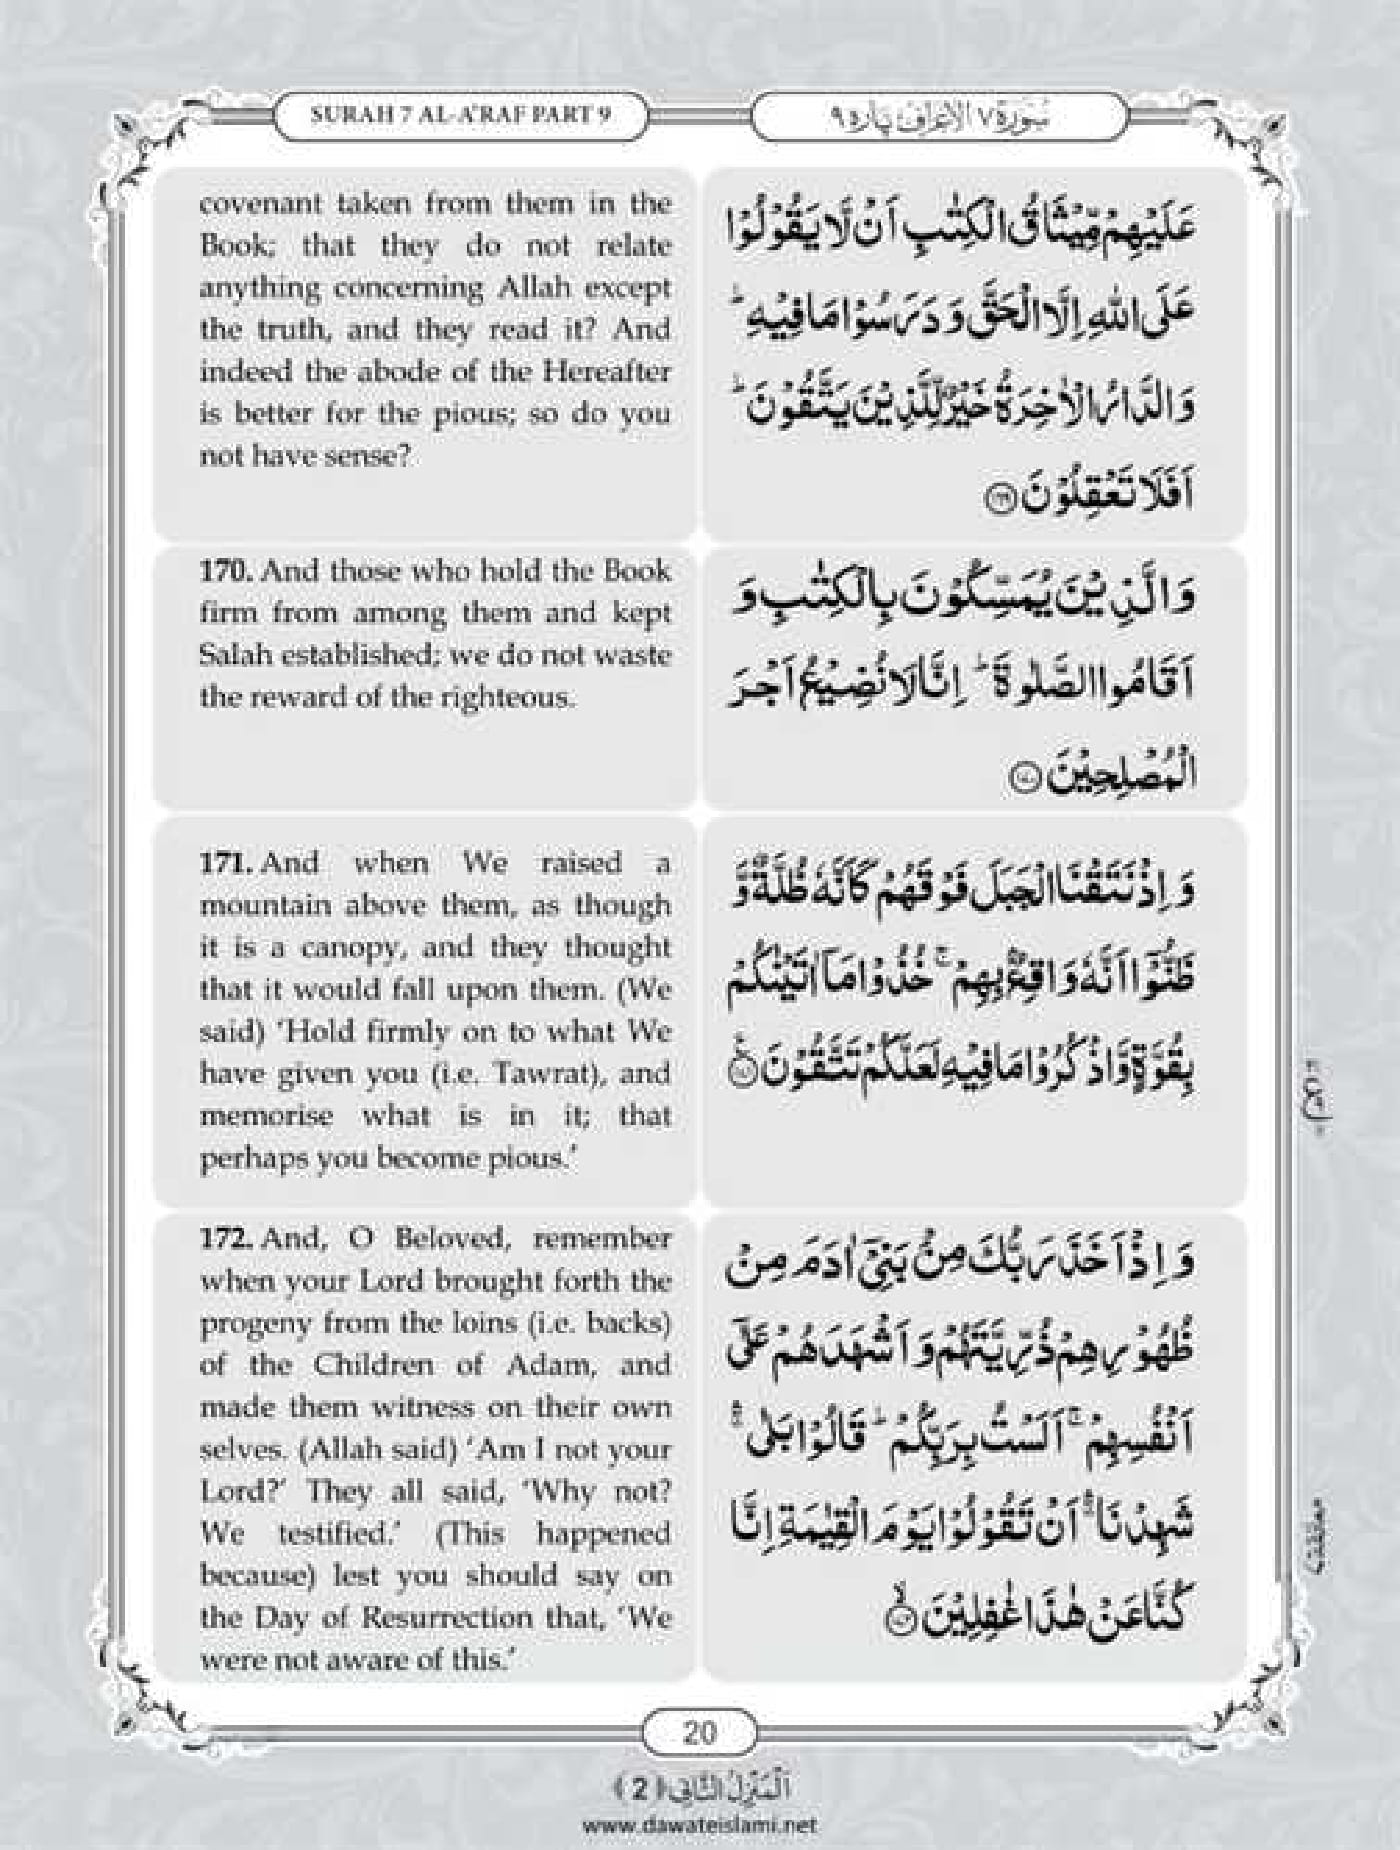 SURAH 7 AL-A'RAF PART 9
سُورَة ٧ الاعراف پارہ ٩
covenant taken from them in the
Book; that they do not relate
anything concerning Allah except
the truth, and they read it? And
indeed the abode of the Hereafter
is better for the pious; so do you
not have sense?
عَلَيْهِمْ مِّيْثَاقُ الْكِتٰبِ اَنْ لَّا يَقُوْلُوْا
عَلَى اللهِ اِلَّا الْحَقَّ وَ دَرَسُوْا مَا فِيْهِ ؕ
وَ الدَّارُ الْاٰخِرَةُ خَيْرٌ لِّلَّذِيْنَ يَتَّقُوْنَ ؕ
اَفَلَا تَعْقِلُوْنَ ﴿۱۶۹﴾
170. And those who hold the Book
firm from among them and kept
Salah established; we do not waste
the reward of the righteous.
وَ الَّذِيْنَ يُمَسِّكُوْنَ بِالْكِتٰبِ وَ
اَقَامُوا الصَّلٰوةَ ؕ اِنَّا لَا نُضِيْعُ اَجْرَ
الْمُصْلِحِيْنَ ﴿۱۷۰﴾
171. And when We raised a
mountain above them, as though
it is a canopy, and they thought
that it would fall upon them. (We
said) ‘Hold firmly on to what We
have given you (i.e. Tawrat), and
memorise what is in it; that
perhaps you become pious.’
وَ اِذْ نَتَقْنَا الْجَبَلَ فَوْقَهُمْ كَاَنَّهٗ ظُلَّةٌ وَّ
ظَنُّوْۤا اَنَّهٗ وَاقِعٌۢ بِهِمْ ۚ خُذُوْا مَاۤ اٰتَيْنٰكُمْ
بِقُوَّةٍ وَّ اذْكُرُوْا مَا فِيْهِ لَعَلَّكُمْ تَتَّقُوْنَ ﴿۱۷۱﴾
172. And, O Beloved, remember
when your Lord brought forth the
progeny from the loins (i.e. backs)
of the Children of Adam, and
made them witness on their own
selves. (Allah said) ‘Am I not your
Lord?’ They all said, ‘Why not?
We testified.’ (This happened
because) lest you should say on
the Day of Resurrection that, ‘We
were not aware of this.’
وَ اِذْ اَخَذَ رَبُّكَ مِنْۢ بَنِيْۤ اٰدَمَ مِنْ
ظُهُوْرِهِمْ ذُرِّيَّتَهُمْ وَ اَشْهَدَهُمْ عَلٰۤى
اَنْفُسِهِمْ ۚ اَلَسْتُ بِرَبِّكُمْ ؕ قَالُوْا بَلٰى ۛۚ
شَهِدْنَا ۛۚ اَنْ تَقُوْلُوْا يَوْمَ الْقِيٰمَةِ اِنَّا
كُنَّا عَنْ هٰذَا غٰفِلِيْنَ ﴿۱۷۲﴾
20
اَلْمَنْزِلُ الثَّانِي ﴿2﴾
www.dawateislami.net